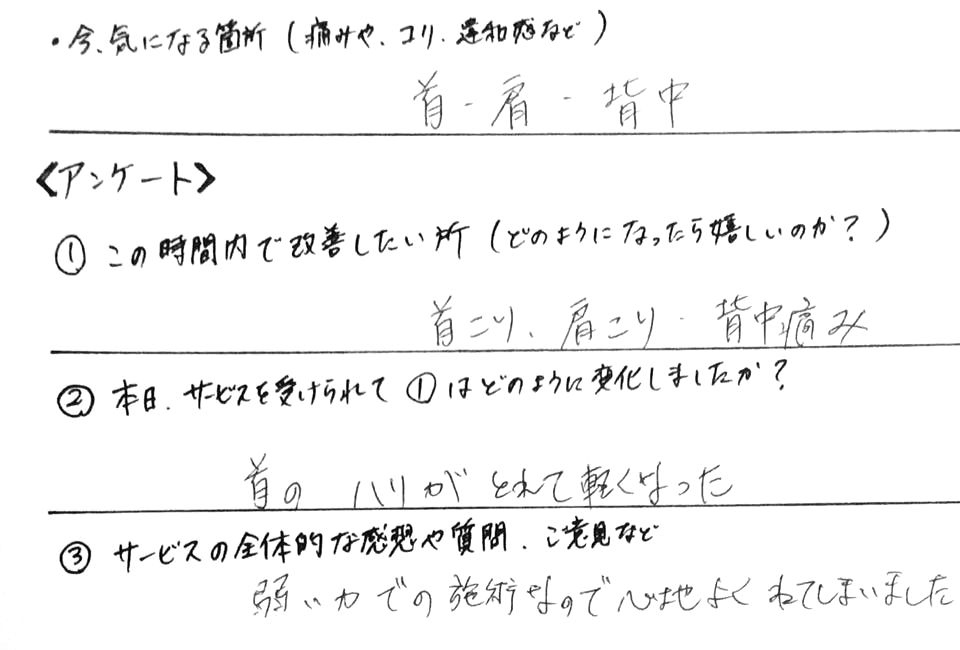 ・今、気になる箇所（痛みや、コリ、違和感など）
首・肩・背中
《アンケート》
① この時間内で改善したい所（どのようになったら嬉しいのか？）
首こり、肩こり・背中痛み
② 本日、サービスを受けられて①はどのように変化しましたか？
首の ハリが とれて軽くなった
③ サービスの全体的な感想や質問、ご意見など
弱い力での施術なので心地よくねてしまいました